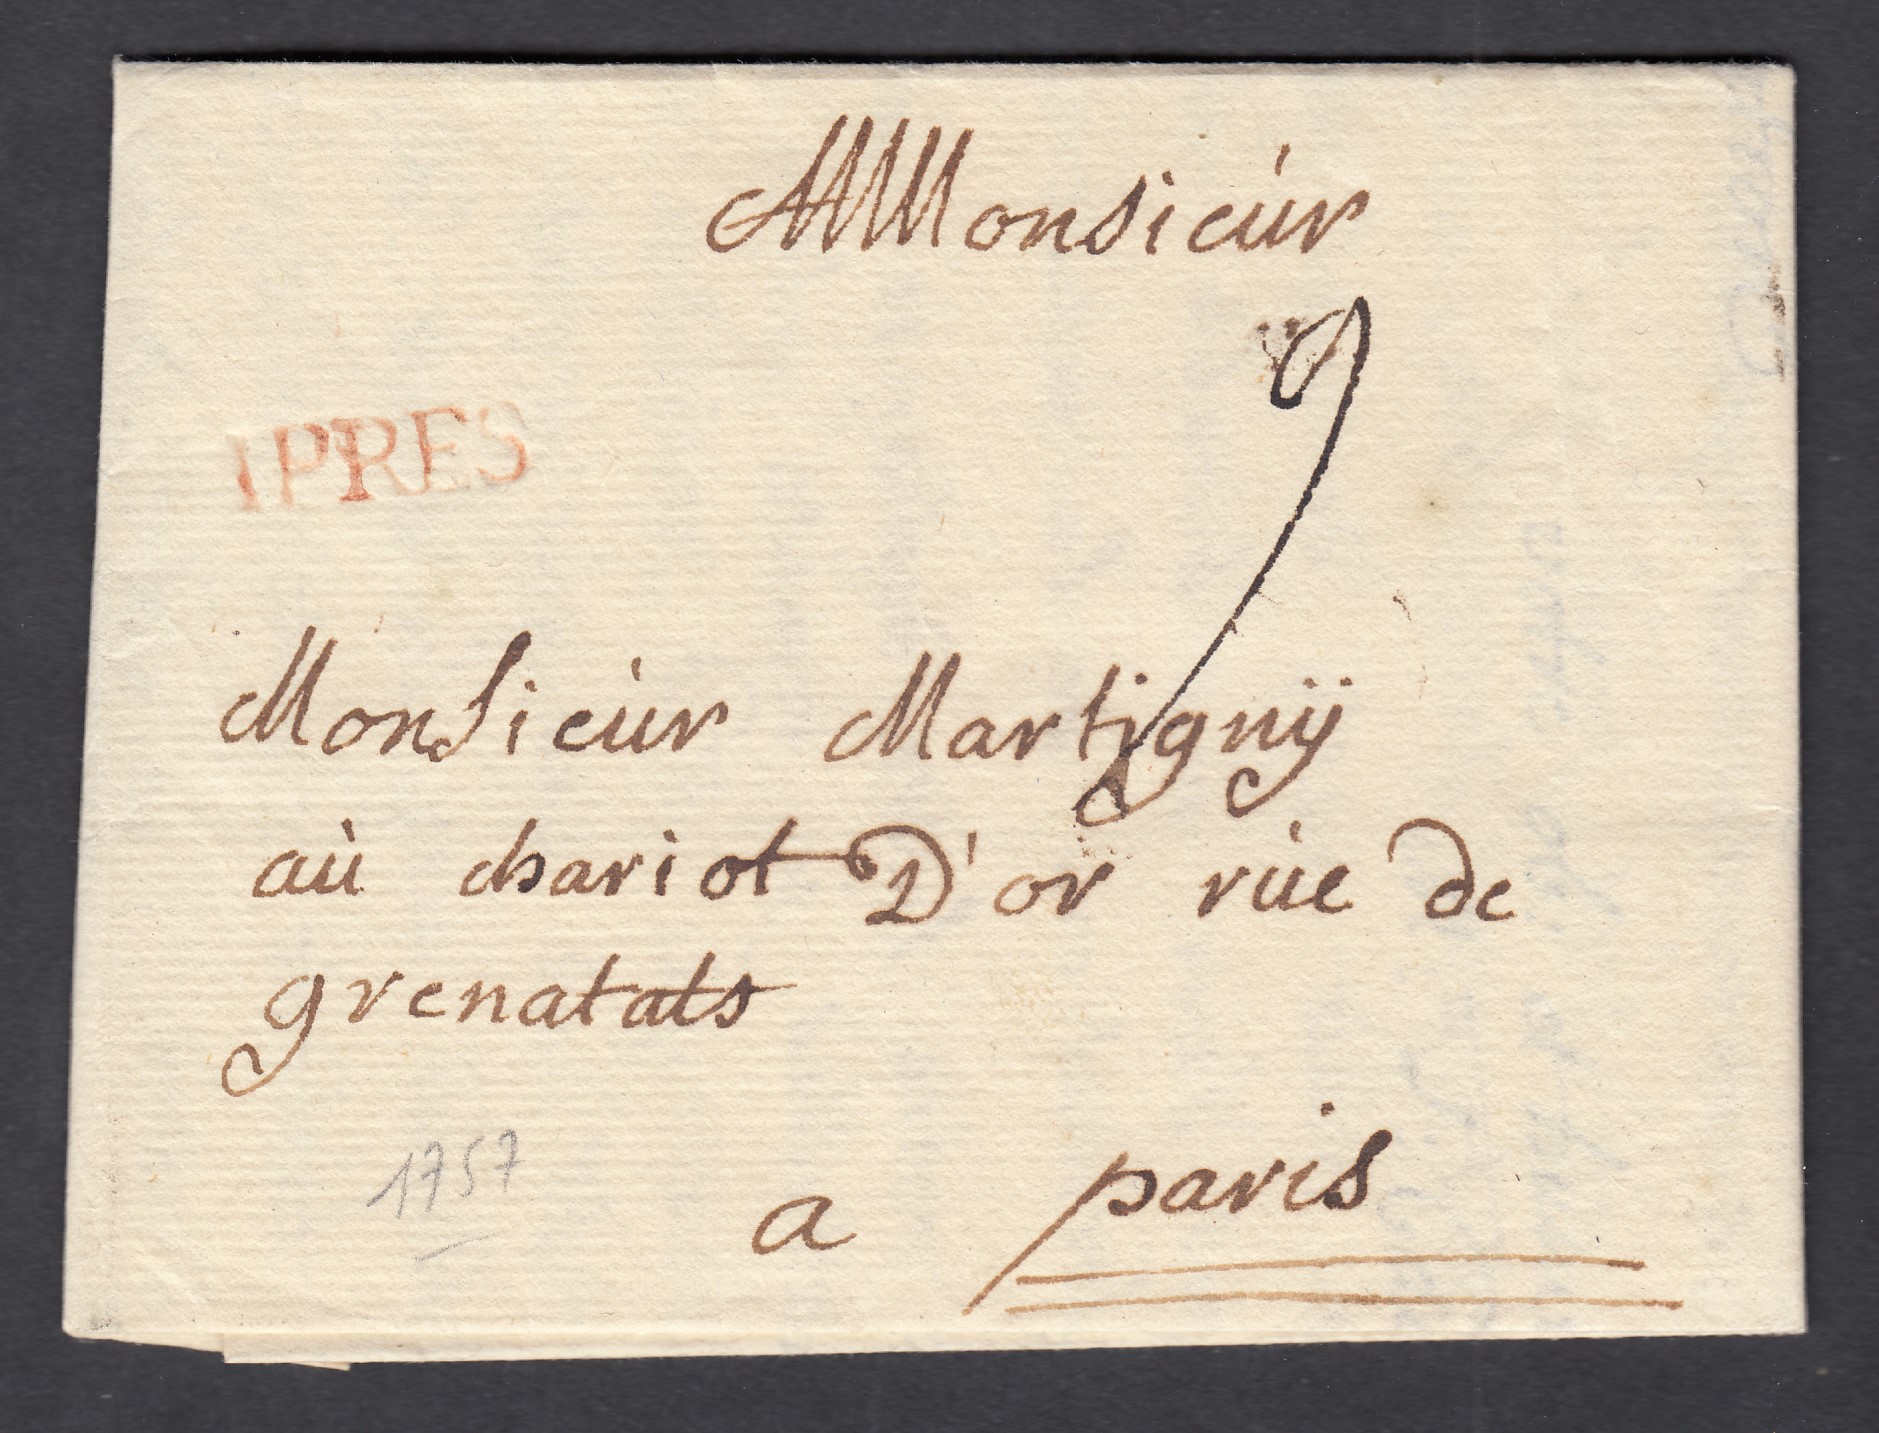 Monsieur
9
IPRES
Monsieur Martignÿ
aù chariot D'or rùe de
grenatats
1757
a paris